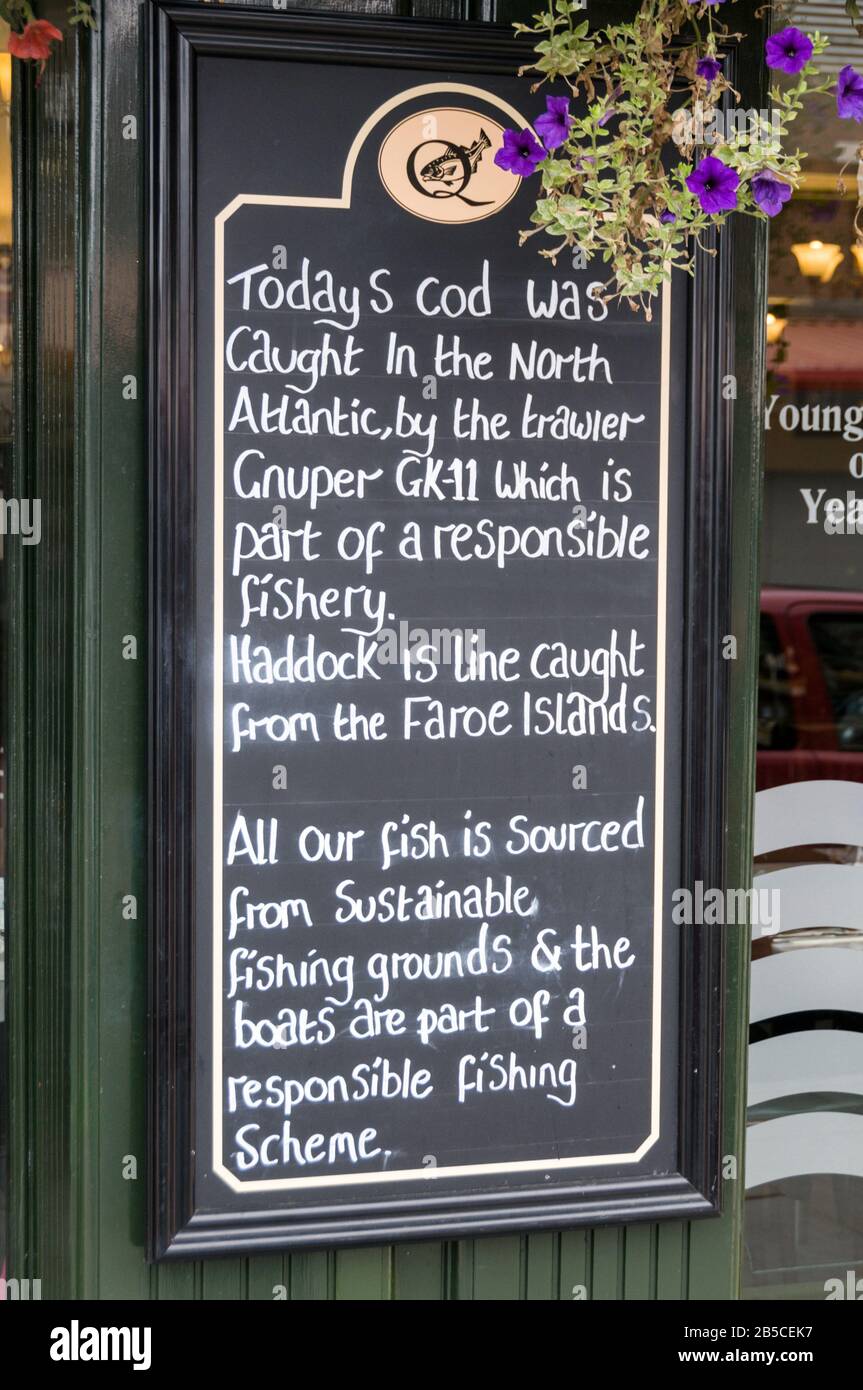 Q
Todays Cod was
Caught In the North
Atlantic, by the trawler
Gnuper GK-11 Which is
part of a responsible
fishery.
Haddock is line caught
from the Faroe Islands.
All our fish is Sourced
from Sustainable
fishing grounds & the
boats are part of a
responsible fishing
Scheme.
Young
o
Yea
alamy
Image ID: 2B5CEK7
www.alamy.com